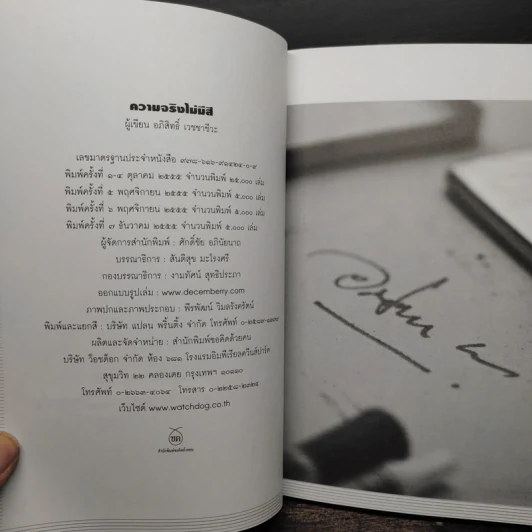 ความจริงไม่มีสี
ผู้เขียน อภิสิทธิ์ เวชชาชีวะ
เลขมาตรฐานประจำหนังสือ ๙๗๘-๖๑๖-๙๑๕๒๔-๐-๙
พิมพ์ครั้งที่ ๑-๔ ตุลาคม ๒๕๕๕ จำนวนพิมพ์ ๒๕,๐๐๐ เล่ม
พิมพ์ครั้งที่ ๕ พฤศจิกายน ๒๕๕๕ จำนวนพิมพ์ ๕,๐๐๐ เล่ม
พิมพ์ครั้งที่ ๖ พฤศจิกายน ๒๕๕๕ จำนวนพิมพ์ ๕,๐๐๐ เล่ม
พิมพ์ครั้งที่ ๗ ธันวาคม ๒๕๕๕ จำนวนพิมพ์ ๕,๐๐๐ เล่ม
ผู้จัดการสำนักพิมพ์ : ศักดิ์ชัย อภินัยนาถ
บรรณาธิการ : สันติสุข มะโรงศรี
กองบรรณาธิการ : งามทัศน์ สุทธิประภา
ออกแบบรูปเล่ม : www.decemberry.com
ภาพปกและภาพประกอบ : พีรพัฒน์ วิมลรังครัตน์
พิมพ์และแยกสี : บริษัท แปลน พริ้นติ้ง จำกัด โทรศัพท์
ผลิตและจัดจำหน่าย : สำนักพิมพ์ขอคิดด้วยคน
บริษัท ว็อชด็อก จำกัด ห้อง ๖๘๑ โรงแรมอิมพีเรียลควีนส์ปาร์ค
สุขุมวิท ๒๒ คลองเตย กรุงเทพฯ ๑๐๑๑๐
โทรศัพท์ ๐-๒๖๖๓-๔๐๖๔ โทรสาร
เว็บไซต์ www.watchdog.co.th
ขค
สำนักพิมพ์ขอคิดด้วยคน